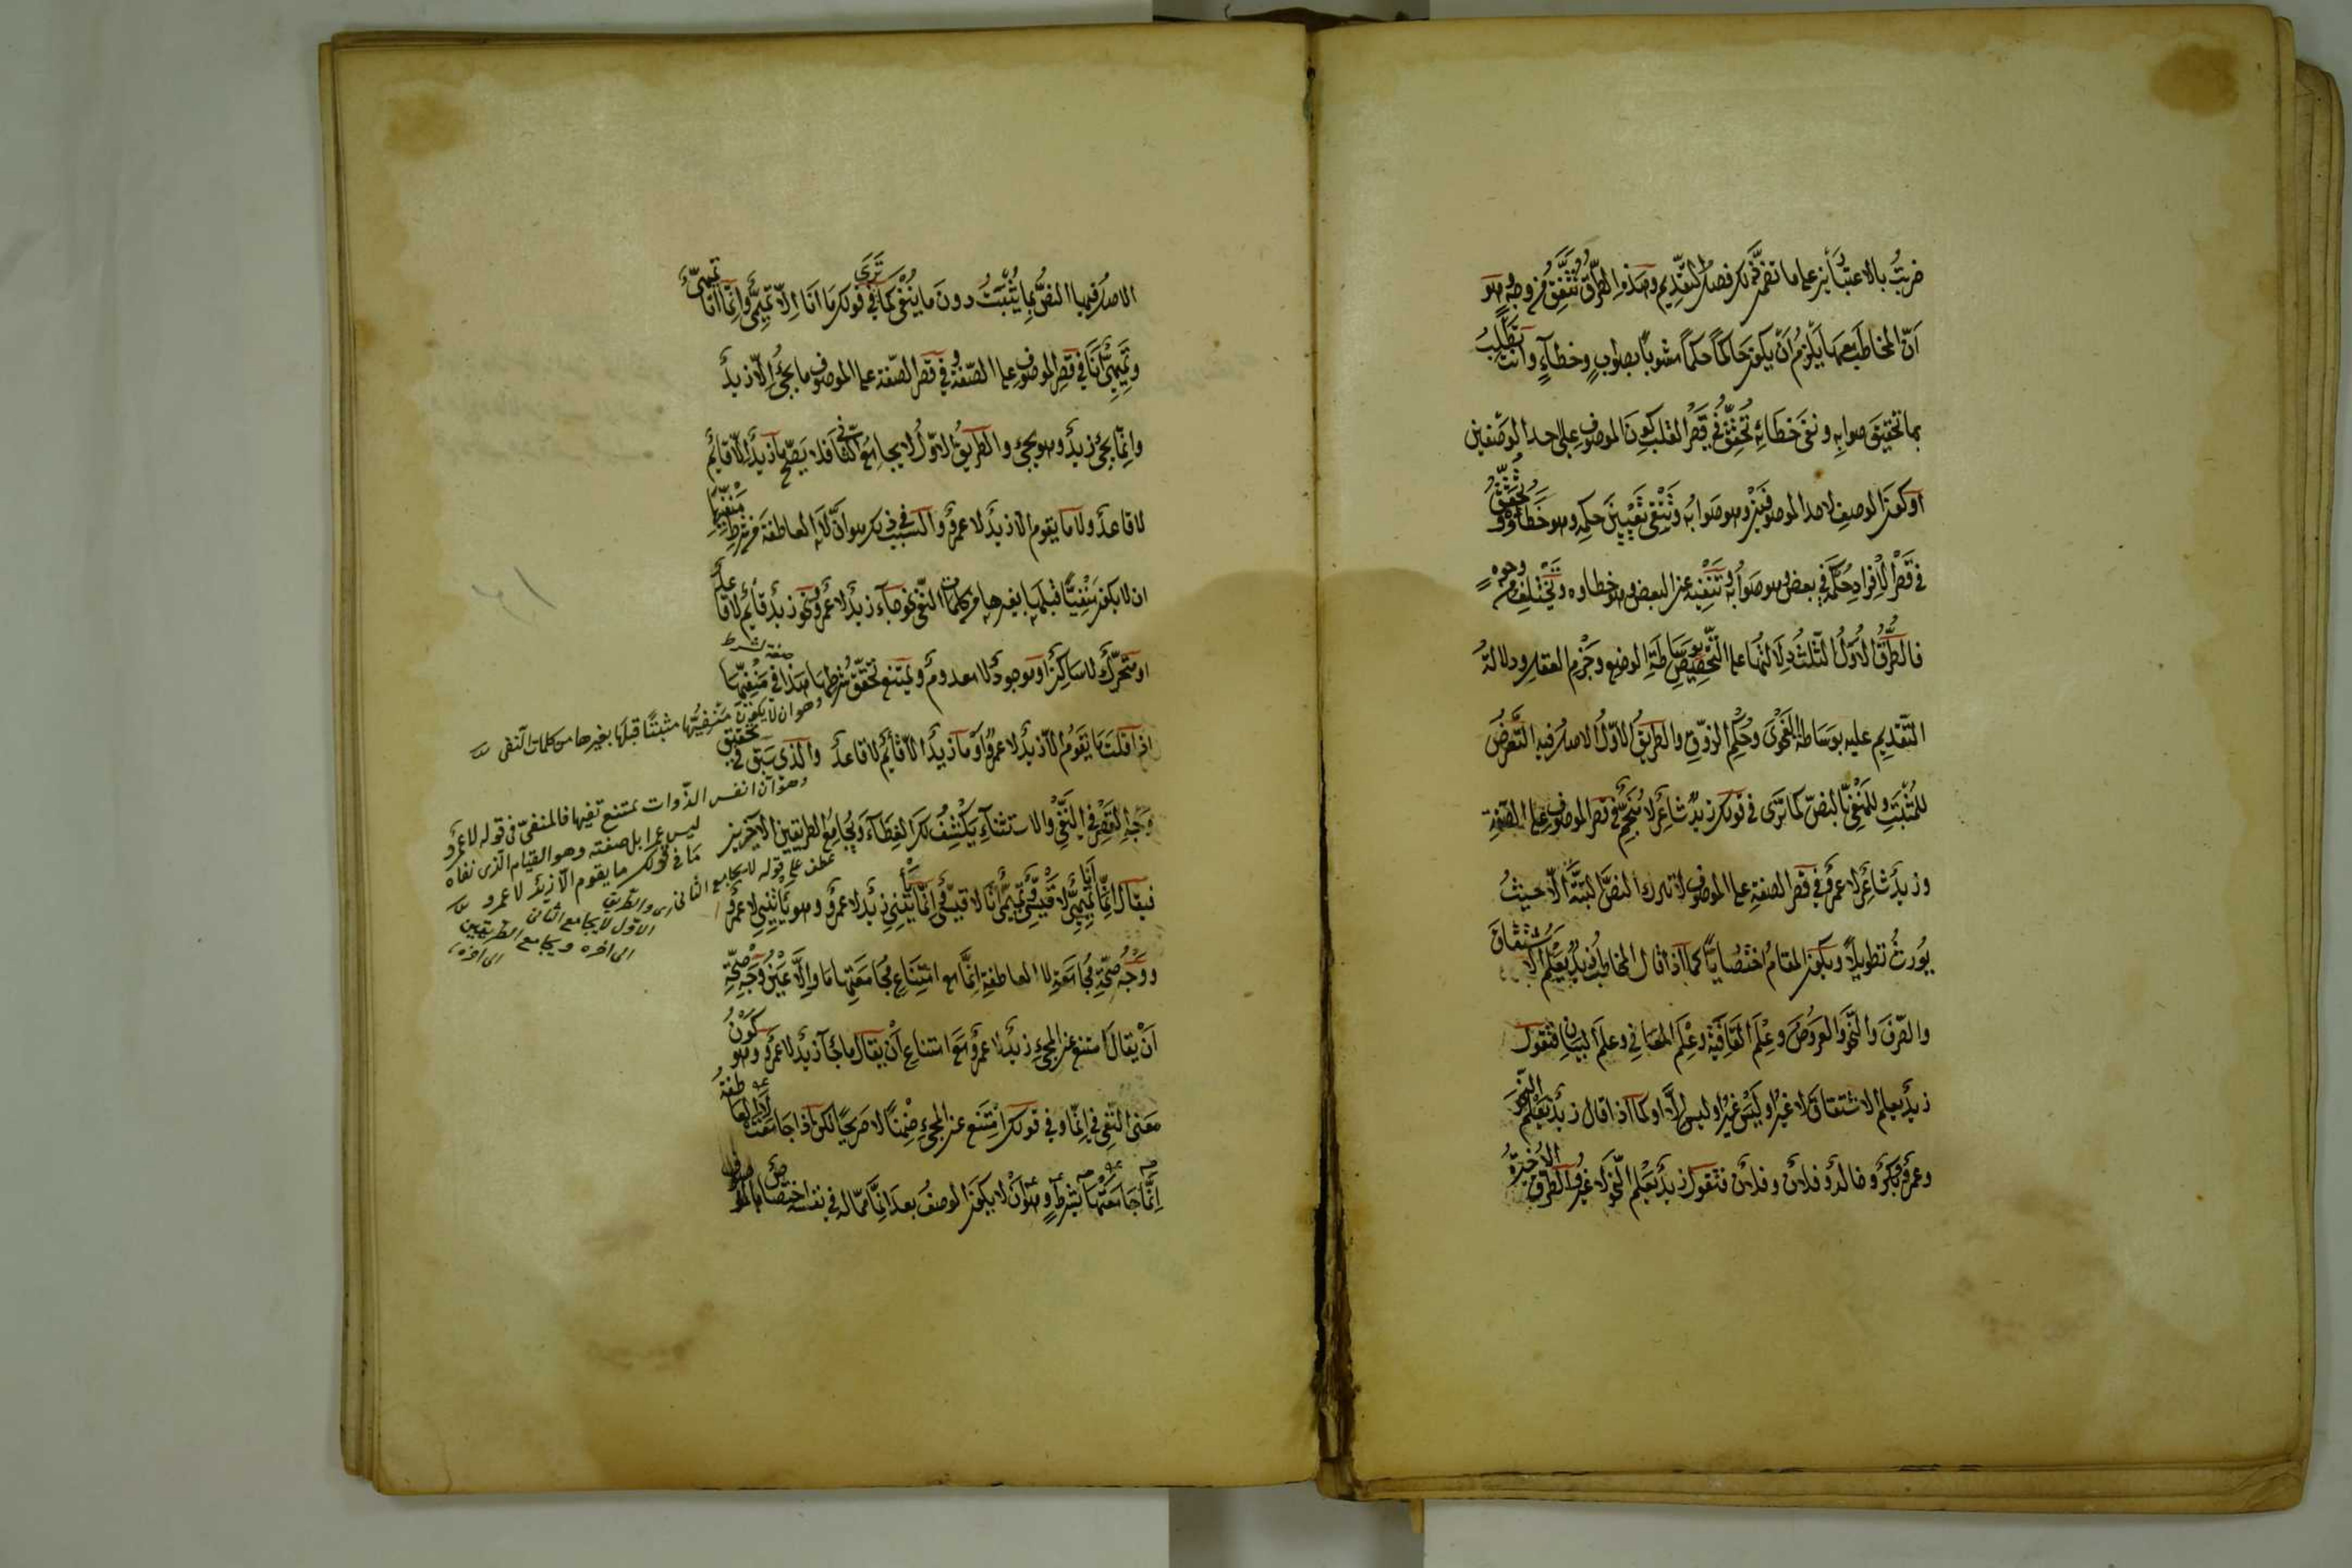 ضربتُ بالاعتبارين على ما تقدّم لك فى فصل التقديم وهذه الطرق تتّفق من وجهٍ وهو
أنّ المخاطب معها يلزم أن يكون حاكمًا حكمًا مشوبًا بصوابٍ وخطاءٍ وانت تطلب
بها تحقيق صوابه ونفى خطائه تحقّق فى قصر القلب كون الموصوف على احد الوصفين
او كون الوصف لاحد الموصوفين وهو صوابه وتنفى تعيين حكمه وهو خطاؤه وتحقّق
فى قصر الافراد حكمه فى بعض وهو صوابه وتنفيه عن البعض وهو خطاوه وتختلف من وجوهٍ
فالطرق الاُوَلُ الثلث دلالتها على التخصيص بوساطة الوضع وجزم العقل ودلالة
التقديم عليه بوساطة الفحوى وحكم الذوق والطريق الاوّل الاصل فيه التعرّض
للمثبت وللمنفىّ بالنصّ كما ترى فى قولك زيد شاعر لا منجّم فى قصر الموصوف على الصفة
وزيد شاعر لا عمرو فى قصر الصفة على الموصوف لا تترك النصّ البتّة الّا حيث
يورث تطويلًا ويكون المقام اختصاريًا كما اذا قال المخاطب زيد يعلم الاشتقاق
والصرف والنحو والعروض وعلم القافية وعلم المعانى وعلم البيان فتقول
زيد يعلم الاشتقاق لا غير او ليس غير او ليس الّا او كما اذا قال زيد يعلم النحو
وعمرو وبكر وخالد وفلان وفلان فتقول زيد يعلم النحو لا غير والطرق الاخيرة
الاصل فيها النصّ بما يثبت دون ما ينفى كما ترى فى قولك ما انا الّا تميمىّ وانما انا تميمىّ
وتميمىّ انا فى قصر الموصوف على الصفة وفى قصر الصفة على الموصوف ما يجئ الّا زيد
وانما يجئ زيد وهو يجئ والطريق الاوّل لا يجامع الثانى فلا يصحّ ما زيد الّا قائم
لا قاعد ولا ما يقوم الّا زيد لا عمرو والسبب فى ذلك هو انّ لا العاطفة من شرط منفيّها
ان لا يكون منفيًّا قبلها بغيرها من كلمات النفى نحو جاء زيد لا عمرو ونحو زيد قائم لا قاعد
او متحرّك لا ساكن او موجود لا معدوم ويمتنع تحقّق شرطها هذا فى منفيّها
اذا قلت ما يقوم الّا زيد لا عمرو او ما زيد الّا قائم لا قاعد والذى سبق فى تحقيق
وجه القصر فى النفى والاستثناء يكشف لك الغطاء ويجامع الطريقين الاخيرين
فيقال انما انا تميمىّ لا قيسىّ وتميمىّ انا لا قيسىّ وانما يأتينى زيد لا عمرو وهو يأتينى لا عمرو
ووجه صحّة مجامعة لا العاطفة انّما مع امتناع مجامعتها ما والّا عين وجه صحّة
ان يقال امتنع عن المجئ زيد لا عمرو مع امتناع ان يقال ما جاء زيد لا عمرو وهو كون
معنى النفى فى انّما وفى قولك امتنع عن المجئ ضمنًا لا صريحًا لكن اذا جامعت لا العاطفة
انّما جامعتها بشرط وهو ان لا يكون الوصف بعد انّما ممّا له فى نفسه اختصاص بالموصوف
وهو ان لا يكون منفيّها مثبتًا قبلها بغيرها من كلمات النفى
وهو ان انفس الذوات يمتنع نفيها فالمنفىّ فى قوله لا عمرو
ليس عمرا بل صفته وهو القيام الذى نفاه
ما فى قولك ما يقوم الّا زيد لا عمرو
عطف على قوله لا يجامع الثانى اى والطريق
الاوّل لا يجامع الثانى
الى اخره ويجامع الطريقين
الى اخره